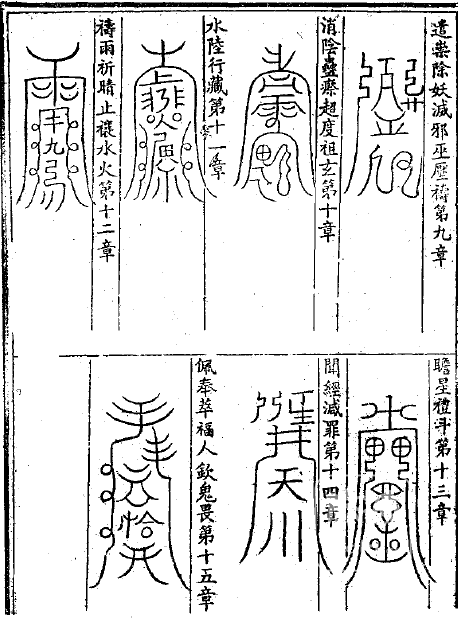 遣祟除妖滅邪巫壓禱第九章
消陰蠱瘵超度祖玄第十章
水陸行藏第十一章
禱雨祈晴止禳水火第十二章
瞻星禮斗第十三章
聞經滅罪第十四章
佩奉萃福人欽鬼畏第十五章